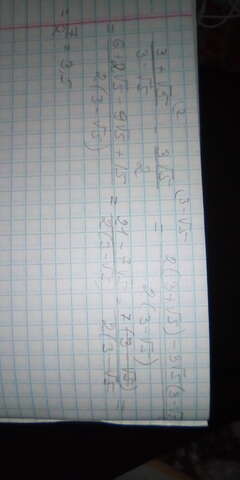 (2 (3-√5
3+√5 / 3-√5 - 3√5 / 2 = 2(3+√5) - 3√5(3-√ / 2(3-√5)
= 6+2√5 - 9√5 + 15 / 2(3-√5) = 21-7√5 / 2(3-√5) = 7(3-√5) / 2(3-√5) =
= 7/2 = 3,5